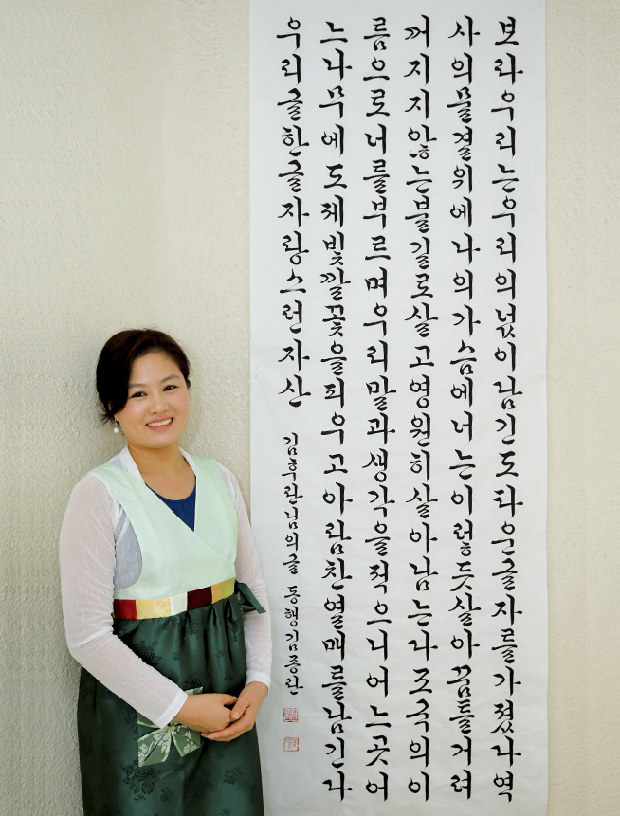 보라우리는우리의넋이담긴도타운글자를가졌다역
사의물결위에나의가슴에너는이렇듯살아꿈틀거려
꺼지지않는불길로살고영원히살아남는다조국의이
름으로너를부르며우리말과생각을적으니어느곳어
느나무에도제빛깔꽃을피우고아람찬열매를남긴다
우리글한글자랑스런자산 김후란님의글 동행김종란